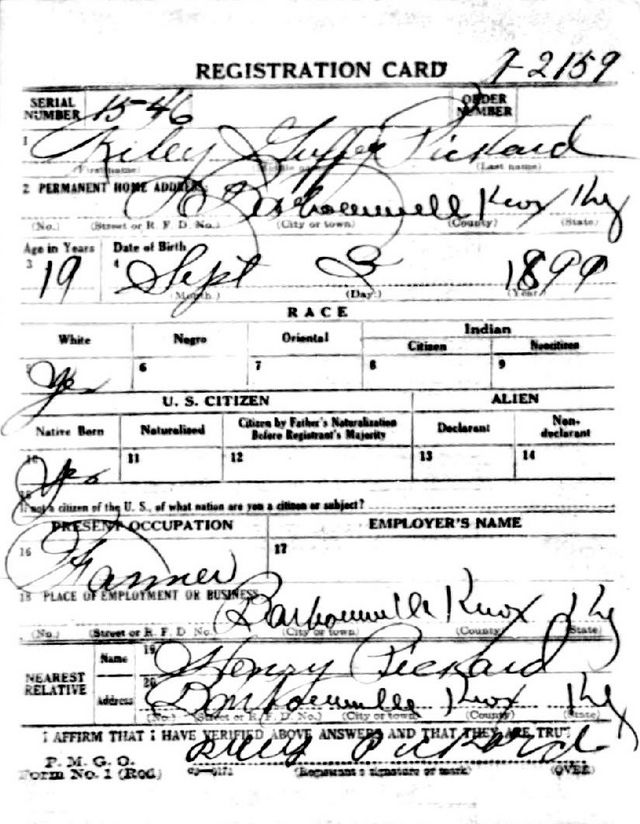 REGISTRATION CARD 9-2159
SERIAL NUMBER 1546 ORDER NUMBER
1 Riley J Pickard
(First name) (Middle name) (Last name)
2 PERMANENT HOME ADDRESS: Barbourville Knox Ky
(No.) (Street or R. F. D. No.) (City or town) (County) (State)
Age in Years Date of Birth
3 19 4 Sept 3 1899
(Month.) (Day.) (Year.)
RACE
White Negro Oriental Indian
Citizen Noncitizen
5 yes 6 7 8 9
U. S. CITIZEN ALIEN
Native Born Naturalized Citizen by Father's Naturalization Before Registrant's Majority Declarant Non-declarant
10 yes 11 12 13 14
15 If not a citizen of the U. S., of what nation are you a citizen or subject?
PRESENT OCCUPATION EMPLOYER'S NAME
16 Farmer 17
18 PLACE OF EMPLOYMENT OR BUSINESS: Barbourville Knox Ky
(No.) (Street or R. F. D. No.) (City or town) (County) (State)
NEAREST RELATIVE Name 19 Henry Pickard
Address 20 Barbourville Knox Ky
(No.) (Street or R. F. D. No.) (City or town) (County) (State)
I AFFIRM THAT I HAVE VERIFIED ABOVE ANSWERS AND THAT THEY ARE TRUE
P. M. G. O.
Form No. 1 (Red) Riley Pickard
(Registrant's signature or mark) (OVER)